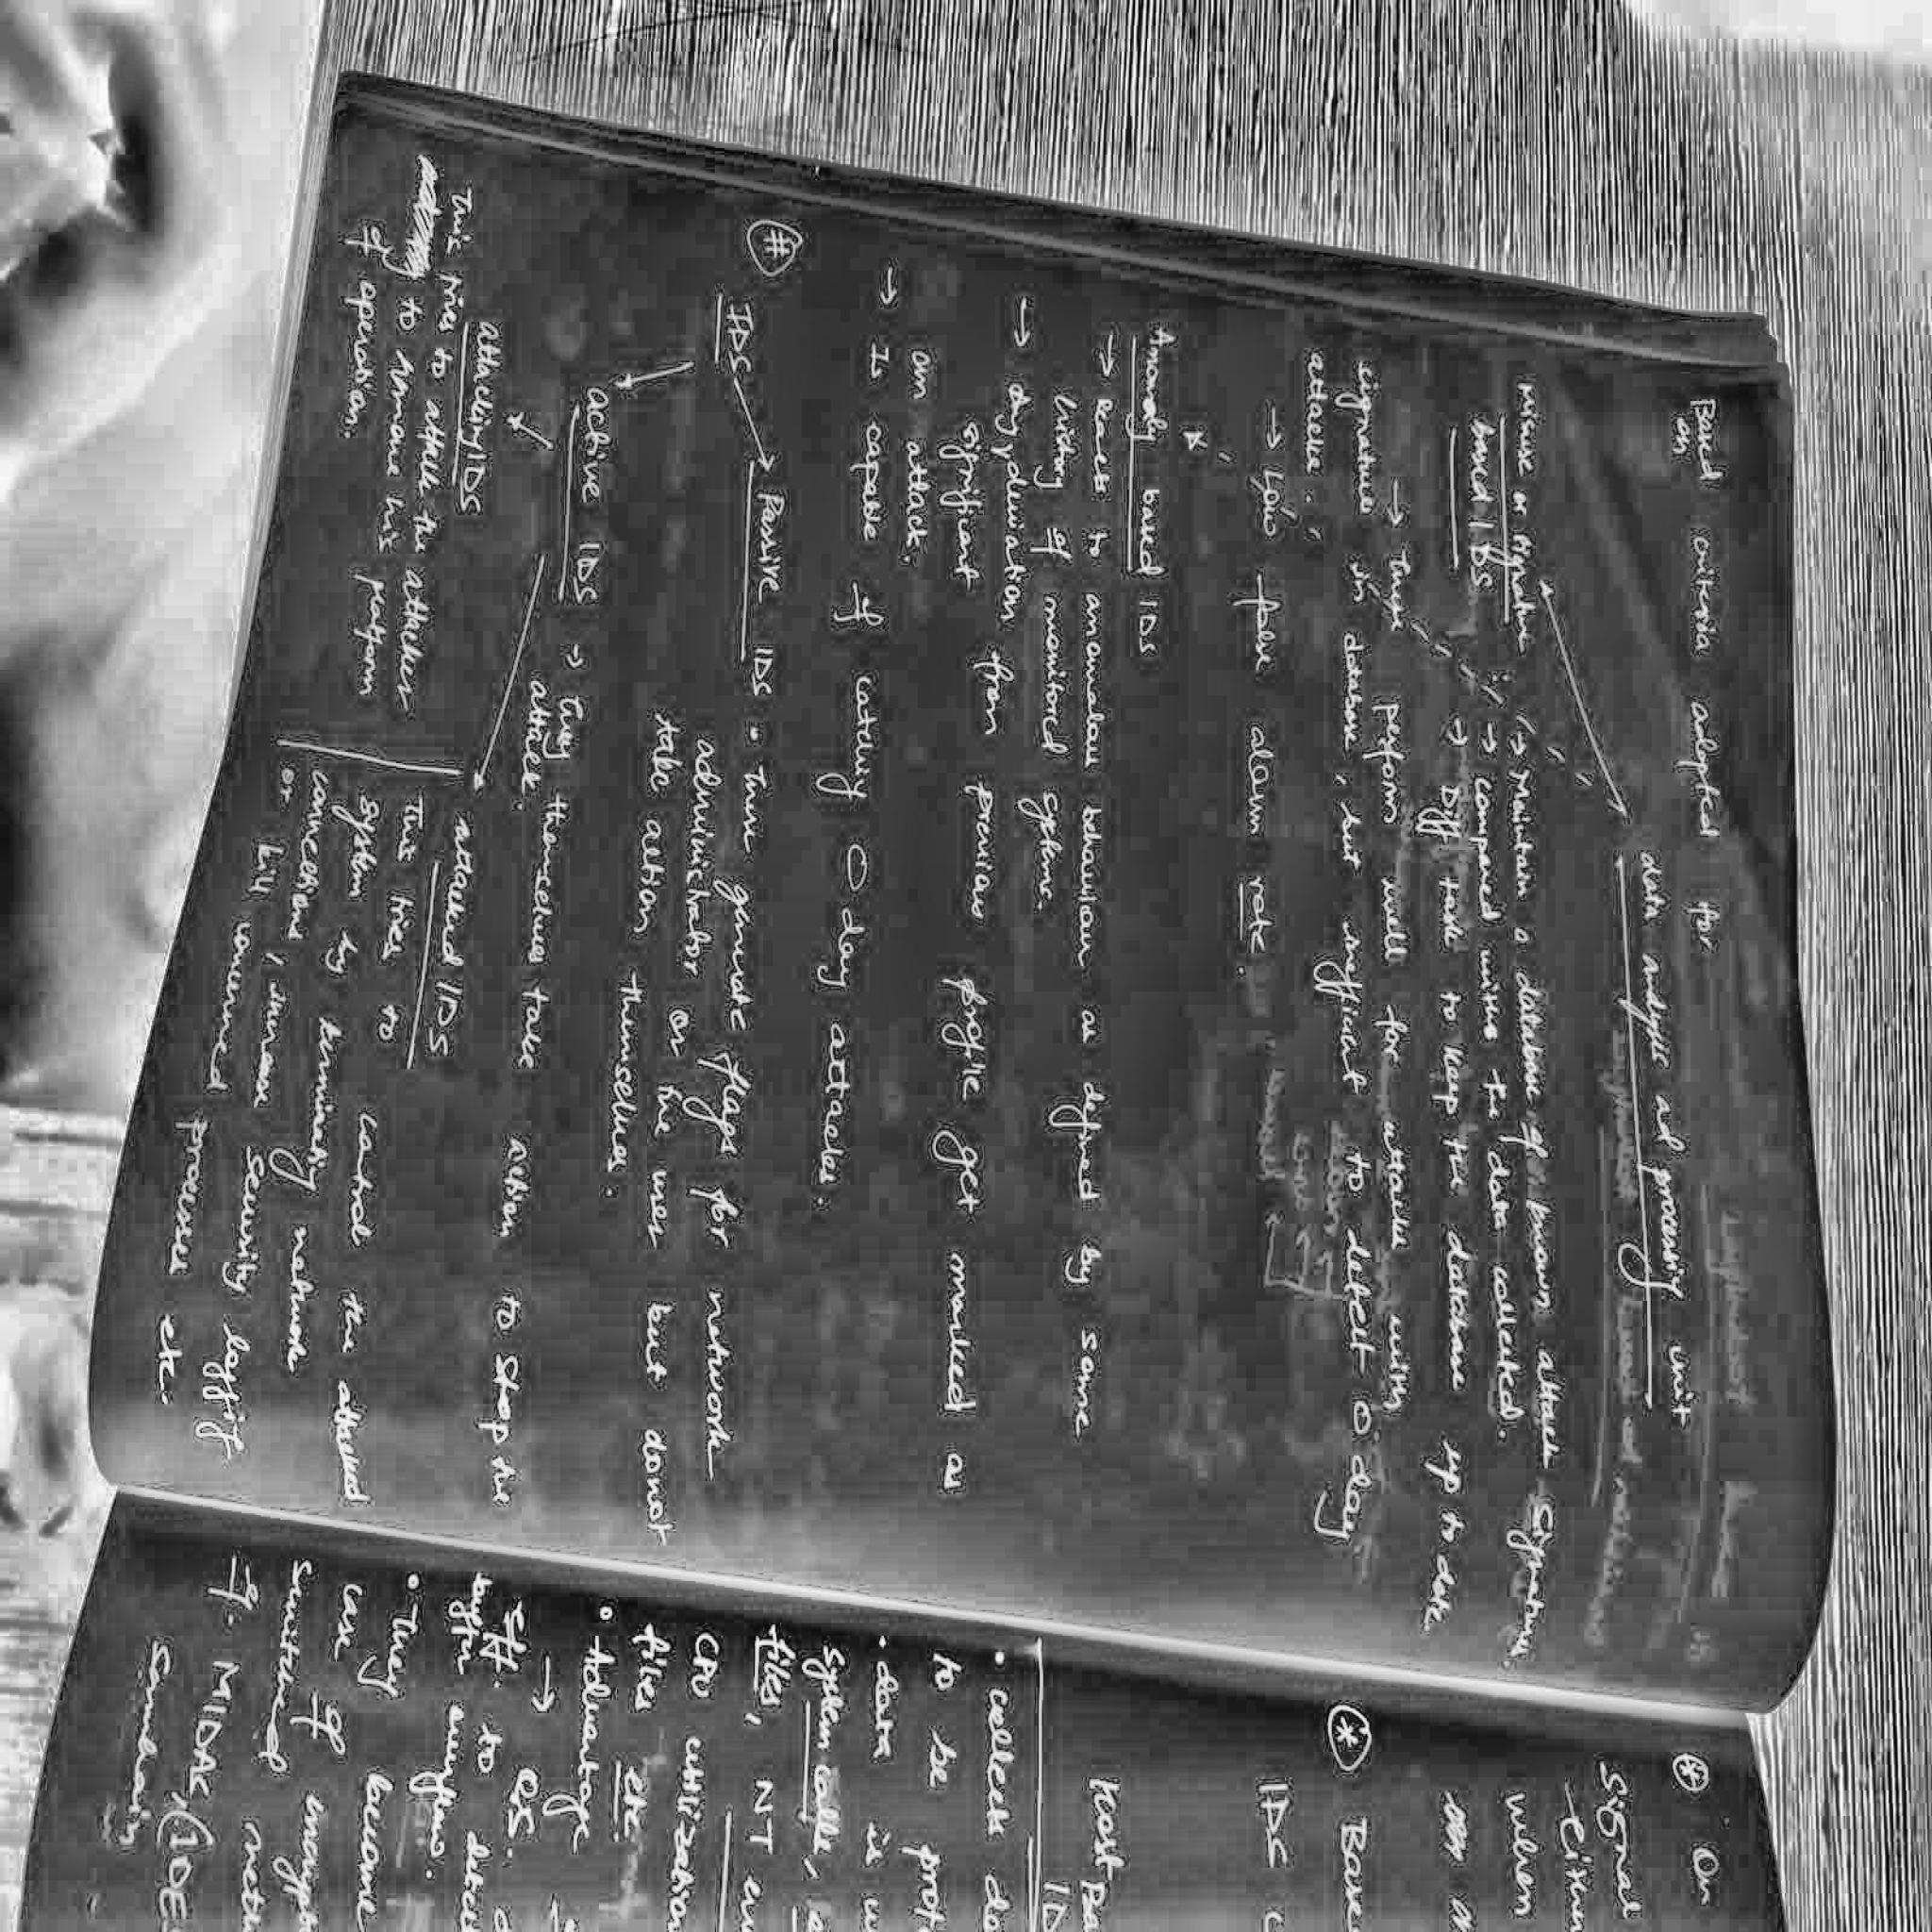 Based on criteria adopted for
data analysis ad processig unit
misuse or signature
based IDS
→ Maintain a database of known attack signatures.
→ compared withs the data collected.
→ Diff task to keep the database up to date
→ These perform well for attacks with
signatures in database, but inefficient to detect 0 day
attacks.
→ Low false alarm rate.
Anomaly based IDS
→ React to anomalous behaviour as defined by some
history of monitored systems.
→ Any deviation from previous profile get marked as
significant
an attack.
→ Is capable of catching 0 day attacks.
# IDS
Passive IDS • These generate flags for network
administrator or the user but donot
take action themselves.
Active IDS → they themselves take action to stop the
attack.
attackinIDS
This tries to attack the attacker
to remove his platform
of operation.
attacked IDS
This tries to control the attacked
system by terminating network
connections, increase security logging
or kill concerned processes etc.
* On
Signal
when
* Base
IDS
Host Ba
• collects da
to be prot
• data is u
System calls,
files, NT
CPU utilization
files etc.
• Advantage
→ OS.
• They
case of
because
encryp
MIDAS, (IDES